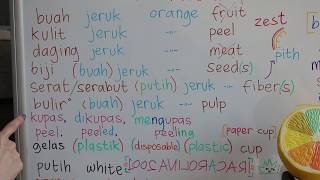 buah jeruk orange fruit
zest
kulit jeruk ---- peel
daging jeruk ---- meat
pith
biji (buah) jeruk ---- seed(s)
serat/serabut (putih) jeruk --- fiber(s)
bulir² (buah) jeruk ---- pulp
kupas. dikupas. mengupas
peel. peeled. peeling
(paper cup)
gelas (plastik) (disposable) (plastic) cup
putih white [BACAROLINADOC]